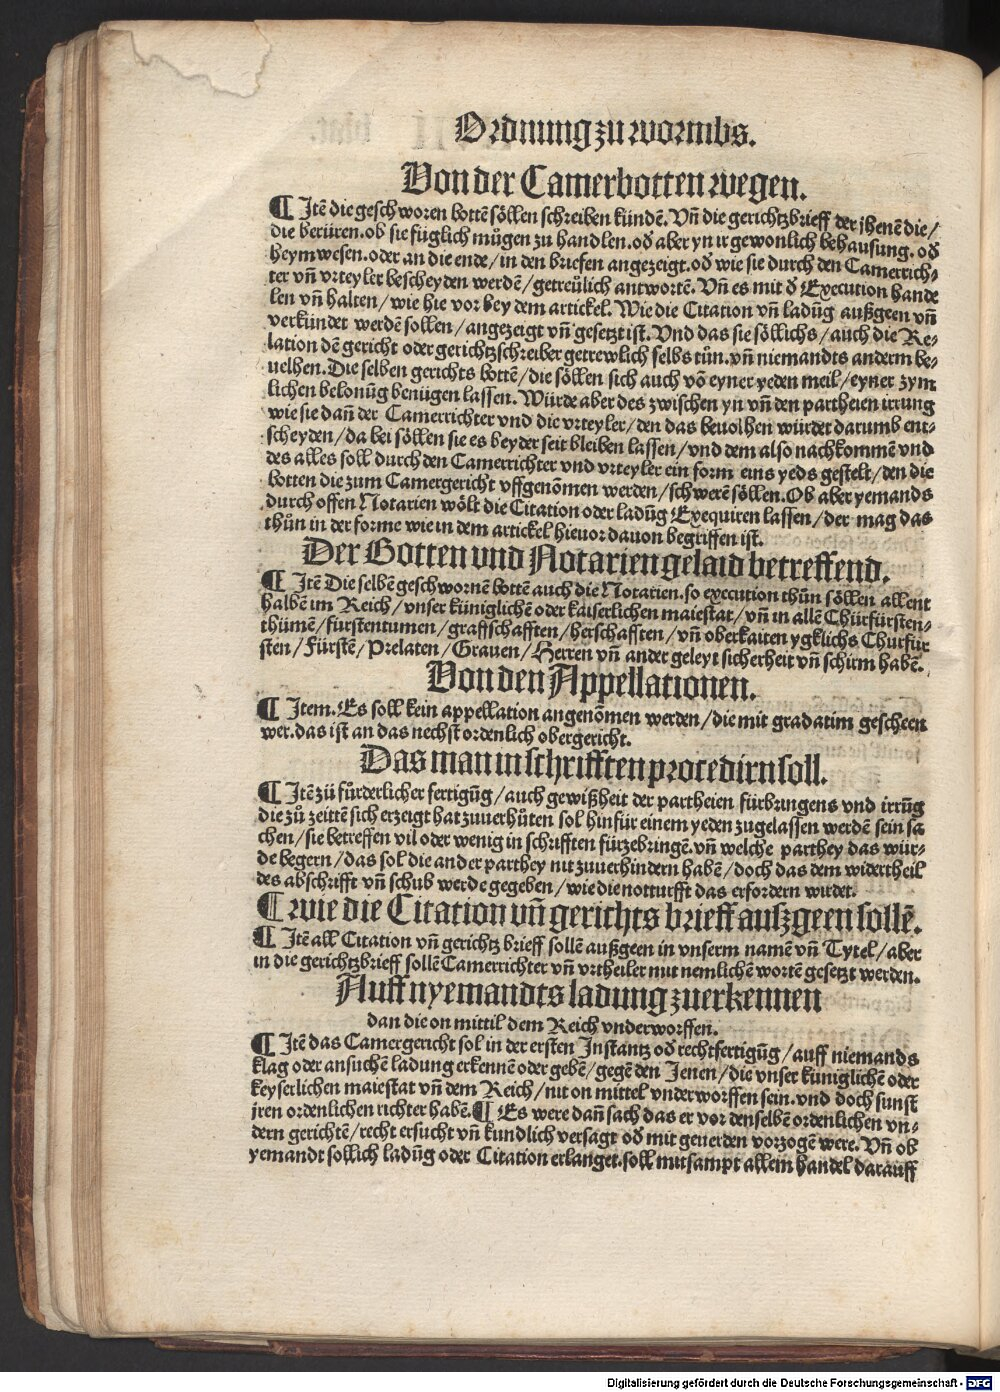 Ordnung zu wormbs.
Von der Camerbotten wegen.
¶ Jtē die geschworen bottē söllen schreiben kündē. Vn̄ die gerichtzbrieff der jhenē die/
die berüren. ob sie füglich mügen zu handlen. od̄ aber yn ir gewonlich behausung. od̄
heymwesen. oder an die ende/ in den briefen angezeigt. od̄ wie sie durch den Camerrich⸗
ter vn̄ vrteyler bescheyden werdē/ getreülich antwortē. Vn̄ es mit d̄ Execution hande
len vn̄ halten/ wie hie vor bey dem artickel. Wie die Citation vn̄ ladūg außgeen vn̄
verkündet werdē sollen/ angezeigt vn̄ gesetzt ist. Vnd das sie söllichs/ auch die Re⸗
lation dē gericht oder gerichtzschreiber getrewlich selbs tůn. vn̄ niemandts anderm be⸗
uelhen. Die selben gerichts bottē/ die söllen sich auch vō eyner yeden meil/ eyner zym
lichen belonūg benügen lassen. Würde aber des zwischen yn vn̄ den partheien irrung
wie sie dan̄ der Camerrichter vnd die vrteyler/ den das beuolhen würdet darumb ent⸗
scheyden/ da bei söllen sie es beyder seit bleiben lassen/ vnd dem also nachkommē vnd
des alles soll durch den Camerrichter vnd vrteyler ein form eins yeds gestelt/ den die
botten die zum Camergericht vffgenōmen werden/ schwerē söllen. Ob aber yemands
durch offen Notarien wölt die Citation oder ladūg Exequiren lassen/ der mag das
thůn in der forme wie in dem artickel hieuor dauon begriffen ist.
Der Botten vnd Notarien gelaid betreffend.
¶ Jtē Die selbē geschwornē bottē auch die Notarien. so execution thůn söllen allent
halbē im Reich/ vnser küniglichē oder kaiserlichen maiestat/ vn̄ in allē Chürfürsten⸗
thümē/ fürstentumen/ graffschafften/ herschafften/ vn̄ oberkaiten ygklichs Churfür
sten/ Fürstē/ Prelaten/ Grauen/ Herren vn̄ ander geleyt sicherheit vn̄ schirm habē.
Von den Appellationen.
¶ Jtem. Es soll kein appellation angenōmen werden/ die mit gradatim gescheen
wer. das ist an das nechst ordenlich obergericht.
Das man in schrifften procedirn soll.
¶ Jtē zü fürderlicher fertigūg/ auch gewißheit der partheien fürbringens vnd irrūg
die zů zeittē sich erzeigt hat zuuerhüten sol hinfür einem yeden zugelassen werdē sein sa
chen/ sie betreffen vil oder wenig in schrifften fürzebringē. vn̄ welche parthey das wür⸗
de begern/ das sol die ander parthey nit zuuerhindern habē/ doch das dem widertheil
des abschrifft vn̄ schub werde gegeben/ wie die notturfft das erfordern wirdet.
¶ wie die Citation vn̄ gerichts brieff außgeen sollē.
¶ Jtē all Citation vn̄ gerichtz brieff sollē außgeen in vnserm namē vn̄ Tytel/ aber
in die gerichtzbrieff sollē Camerrichter vn̄ vrtheiler mit nemlichē wortē gesetzt werden.
Auff nyemandts ladung zuerkennen
dan die on mittil dem Reich vnderworffen.
¶ Jtē das Camergericht sol in der ersten Instantz od̄ rechtfertigūg/ auff niemands
klag oder ansuchē ladung erkennē oder gebē/ gegē den Jenen/ die vnser küniglichē oder
keyserlichen maiestat vn̄ dem Reich/ nit on mittel vnderworffen sein. vnd doch sunst
jren ordenlichen richter habē. ¶ Es were dan̄ sach das er vor denselbē ordenlichen vn⸗
dern gerichtē/ recht ersucht vn̄ kundlich versagt od̄ mit geuerden vorzogē were. Vn̄ ob
yemandt sollich ladūg oder Citation erlanget. soll mitsampt allem handel darauff
Digitalisierung gefördert durch die Deutsche Forschungsgemeinschaft - DFG